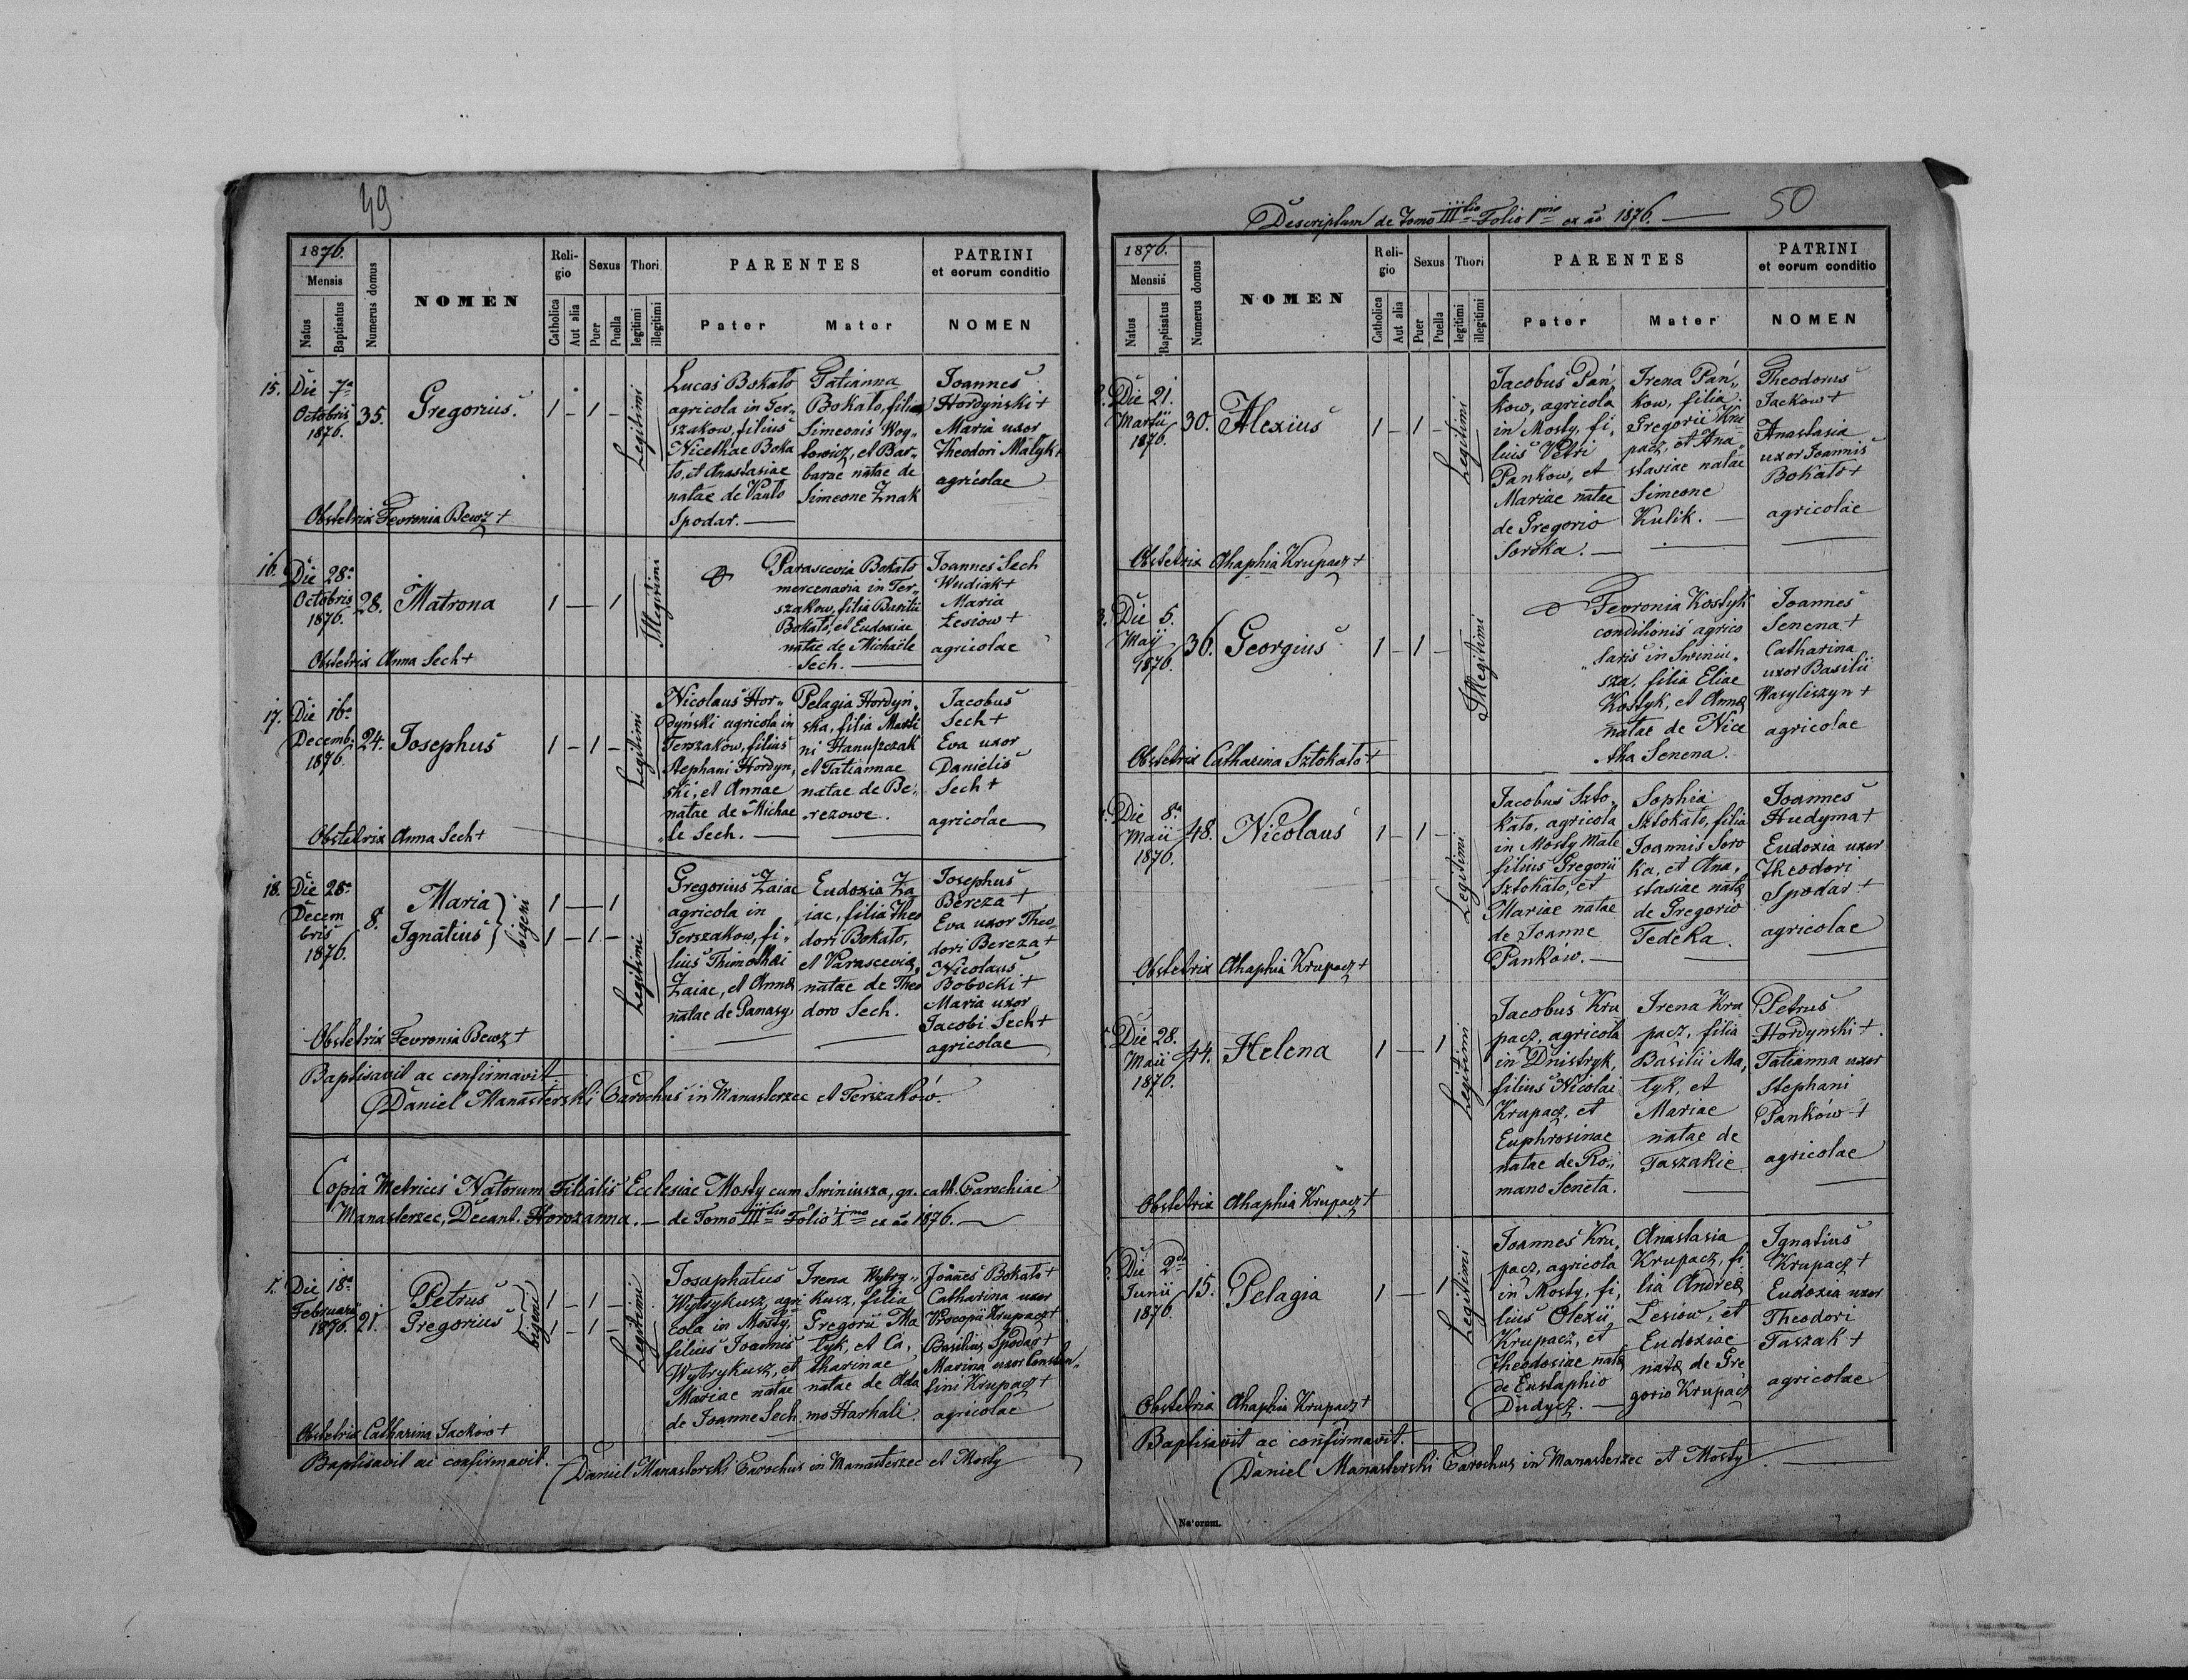 49
1876.
Mensis
Natus
Baptisatus
Numerus domus
NOMEN
Religio
Catholica
Aut alia
Sexus
Puer
Puella
Thori
legitimi
illegitimi
PARENTES
Pater
Mater
PATRINI
et eorum conditio
NOMEN
15. Die 7a
Octobris
1876.
35.
Gregorius.
1 – 1 –
Legitimi
Lucas Bokało
agricola in Ter„
szakow, filius
Nicethae Boka
ło, et Anastasiae
natae de Paulo
Spodar. —
Tatianna
Bokało, filia
Simeonis Wog„
łowicz, et Bar„
barae natae de
Simeone Znak
Joannes
Hordyński +
Maria uxor
Theodori Małyk +
agricolae
Obstetrix Fevronia Bewz +
16. Die 28a
Octobris
1876.
28.
Matrona
1 — 1
Illegitimi
Parascevia Bokało
mercenaria in Ter„
szakow, filia Basilii
Bokało, et Eudoxiae
natae de Michaële
Sech. —
Joannes Sech
Wudiak +
Maria
Łesiow +
agricolae
Obstetrix Anna Sech +
17. Die 16a
Decemb.
1876.
24.
Josephus
1 – 1 –
Legitimi
Nicolaus Hor„
dyński agricola in
Terszakow, filius
Stephani Hordyn,
ski, et Annae
natae de Michae
„le Sech. —
Pelagia Hordyn„
ska, filia Marti
ni Hanuszczak
et Tatiannae
natae de Be„
rezowe.
Jacobus
Sech +
Eva uxor
Danielis
Sech +
agricolae
Obstetrix Anna Sech +
18. Die 28a
Decem
bris
1876.
8.
Maria
Ignatius
bigeni
1 — 1
1 – 1 –
Legitimi
Gregorius Zaiac
agricola in
Terszakow, fi„
lius Thimothei
Zaiac, et Annae
natae de Panasy
Eudoxia Za
iac, filia Theo
dori Bokało,
et Parasceviae
natae de Theo
doro Sech.
Josephus
Bereza +
Eva uxor Theo„
dori Bereza +
Nicolaus
Bobocki +
Maria uxor
Jacobi Sech +
agricolae
Obstetrix Fevronia Bewz +
Baptisavit ac confirmavit
Daniel Manasterski Parochus in Manasterzec et Terszaków.
Copia Metrices Natorum Filialis Ecclesiae Mosty cum Swiniusza, gr. cath. Parochiae
Manasterzec, Decant. Horożanna. — de Tomo IIItio Folio 1mo ex ao 1876. —
1. Die 18a
Februarii
1876.
21.
Petrus
Gregorius
bigeni
1 – 1 –
1 – 1 –
Legitimi
Josaphatus
Wytrykusz, agri
cola in Mosty,
filius Joannis
Wytrykusz, et
Mariae natae
de Joanne Sech
Irena Wytry„
kusz, filia
Gregorii Ma
łyk, et Ca,
tharinae
natae de Ada
mo Harhali.
Joannes Bokało +
Catharina uxor
Procopii Krupacz +
Basilius Spodar +
Marina uxor Constan„
tini Krupacz +
agricolae
Obstetrix Catharina Jacków +
Baptisavit ac confirmavit. Daniel Manasterski Parochus in Manasterzec et Mosty
Descriptum de Tomo IIItio Folio 1mo ex ao 1876. —
50
1876.
Mensis
Natus
Baptisatus
Numerus domus
NOMEN
Religio
Catholica
Aut alia
Sexus
Puer
Puella
Thori
legitimi
illegitimi
PARENTES
Pater
Mater
PATRINI
et eorum conditio
NOMEN
2. Die 21.
Martii
1876.
30.
Alexius
1 – 1 –
Legitimi
Jacobus Pań
kow, agricola
in Mosty, fi,
lius Petri
Pankow, et
Mariae natae
de Gregorio
Soroka. —
Irena Pań„
kow, filia
Gregorii Kru
pacz, et Ana„
stasiae natae
Simeone
Kulik. —
Theodorus
Jackow +
Anastasia
uxor Joannis
Bokało +
agricolae
Obstetrix Ahaphia Krupacz +
3. Die 5.
Maij
1876.
36.
Georgius
1 – 1 –
Illegitimi
Fevronia Kostyk
conditionis agrico
„laris in Swiniu„
sza, filia Eliae
Kostyk, et Annae
natae de Nice
tha Senena.
Joannes
Senena +
Catharina
uxor Basilii
Wasyliszyn +
agricolae
Obstetrix Catharina Sztokało +
4. Die 8a
Maii
1876.
48.
Nicolaus
1 – 1 –
Legitimi
Jacobus Szto„
kało, agricola
in Mosty małe
filius Gregorii
Sztokało, et
Mariae natae
de Joanne
Panków. —
Sophia
Sztokało, filia
Joannis Soro
ka, et Ana,
stasiae natae
de Gregorio
Fedeka.
Joannes
Hudyma +
Eudoxia uxor
Theodori
Spodar +
agricolae
Obstetrix Ahaphia Krupacz +
5. Die 28.
Maii
1876.
44.
Helena
1 — 1
Legitimi
Jacobus Kru
pacz, agricola
in Dnistryk,
filius Nicolai
Krupacz, et
Euphrosinae
natae de Ro„
mano Seneta.
Irena Kru
pacz, filia
Basilii Ma,
łyk, et
Mariae
natae de
Taszakie
Petrus
Hordynski +
Tatianna uxor
Stephani
Panków +
agricolae
Obstetrix Ahaphia Krupacz +
6. Die 2da
Junii
1876.
15.
Pelagia
1 — 1
Legitimi
Joannes Kru„
pacz, agricola
in Mosty, fi,
lius Olexii
Krupacz, et
Theodosiae natae
de Eustaphio
Dudycz. —
Anastasia
Krupacz, fi
lia Andreae
Lesiow, et
Eudoxiae
natae de Gre
gorio Krupacz
Ignatius
Krupacz +
Eudoxia uxor
Theodori
Taszak +
agricolae
Obstetrix Ahaphia Krupacz +
Baptisavit ac confirmavit.
Daniel Manasterski Parochus in Manasterzec et Mosty. —
Natorum.